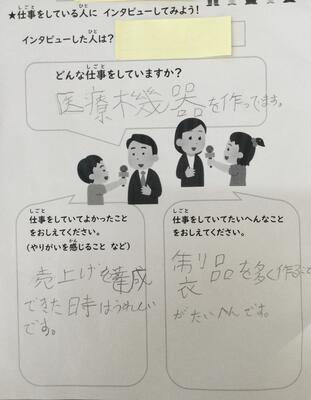 ★仕事をしている人に インタビューしてみよう!
インタビューした人は?
どんな仕事をしていますか?
医療機器を作ってます。
仕事をしていてよかったこと
をおしえてください。
(やりがいを感じること など)
売上げを達成
できた時はうれしい
です。
仕事をしていてたいへんなこと
をおしえてください。
製品を多く作ること
がたいへんです。